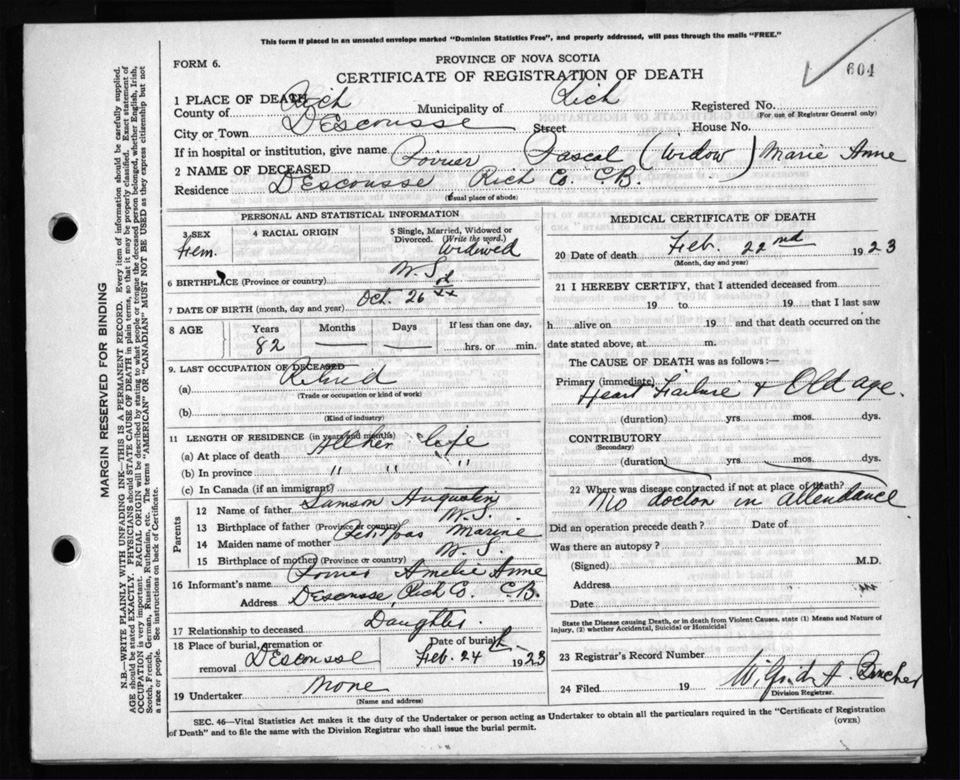 This form if placed in an unsealed envelope marked "Dominion Statistics Free", and properly addressed, will pass through the mails "FREE."
604
FORM 6.
PROVINCE OF NOVA SCOTIA
CERTIFICATE OF REGISTRATION OF DEATH
1 PLACE OF DEATH
County of Rich Municipality of Rich Registered No.
(For use of Registrar General only)
City or Town D'Escousse Street House No.
If in hospital or institution, give name
2 NAME OF DECEASED Poirier Pascal (Widow) Marie Anne
Residence D'Escousse Rich Co. C.B.
(Usual place of abode)
PERSONAL AND STATISTICAL INFORMATION
3 SEX Fem.
4 RACIAL ORIGIN
5 Single, Married, Widowed or Divorced. (Write the word.) Widowed
6 BIRTHPLACE (Province or country) N.S.
7 DATE OF BIRTH (month, day and year) Oct. 26
8 AGE Years 82 Months — Days —
If less than one day, hrs. or min.
9. LAST OCCUPATION OF DECEASED
(a) Retired
(Trade or occupation or kind of work)
(b)
(Kind of industry)
11 LENGTH OF RESIDENCE (in years and months)
(a) At place of death All her life
(b) In province " " "
(c) In Canada (if an immigrant)
Parents
12 Name of father Samson Augustin
13 Birthplace of father (Province or country) N.S.
14 Maiden name of mother Marine
15 Birthplace of mother (Province or country) N.S.
16 Informant's name Poirier Amelie Anne
Address Descousse, Rich Co. C.B.
17 Relationship to deceased Daughter.
18 Place of burial, cremation or removal Descousse
Date of burial Feb. 24 1923
19 Undertaker None
(Name and address)
MEDICAL CERTIFICATE OF DEATH
20 Date of death Feb. 22nd 1923
(Month, day and year)
21 I HEREBY CERTIFY, that I attended deceased from
19 to 19 that I last saw
h alive on 19 and that death occurred on the
date stated above, at m.
The CAUSE OF DEATH was as follows:—
Primary (immediate) Heart Failure & Old age.
(duration) yrs mos. dys.
CONTRIBUTORY
(Secondary)
(duration) yrs mos. dys.
22 Where was disease contracted if not at place of death?
No doctor in attendance
Did an operation precede death? Date of
Was there an autopsy?
(Signed) M.D.
Address
Date
State the Disease causing Death, or in death from Violent Causes, state (1) Means and Nature of
Injury, (2) whether Accidental, Suicidal or Homicidal
23 Registrar's Record Number
24 Filed 19 Wilfrid A.
Division Registrar.
SEC. 46—Vital Statistics Act makes it the duty of the Undertaker or person acting as Undertaker to obtain all the particulars required in the "Certificate of Registration
of Death" and to file the same with the Division Registrar who shall issue the burial permit.
(OVER)
MARGIN RESERVED FOR BINDING
N.B.—WRITE PLAINLY WITH UNFADING INK—THIS IS A PERMANENT RECORD. Every item of information should be carefully supplied.
AGE should be stated EXACTLY. PHYSICIANS should STATE CAUSE OF DEATH in plain terms, so that it may be properly classified. Exact statement of
OCCUPATION is very important. RACIAL ORIGIN will be described by stating to what people or tongue the deceased person belonged, whether English, Irish,
Scotch, French, German, Russian, Ruthenian, etc. The terms "AMERICAN" OR "CANADIAN" MUST NOT BE USED as they express citizenship but not
a race or people. See instructions on back of Certificate.